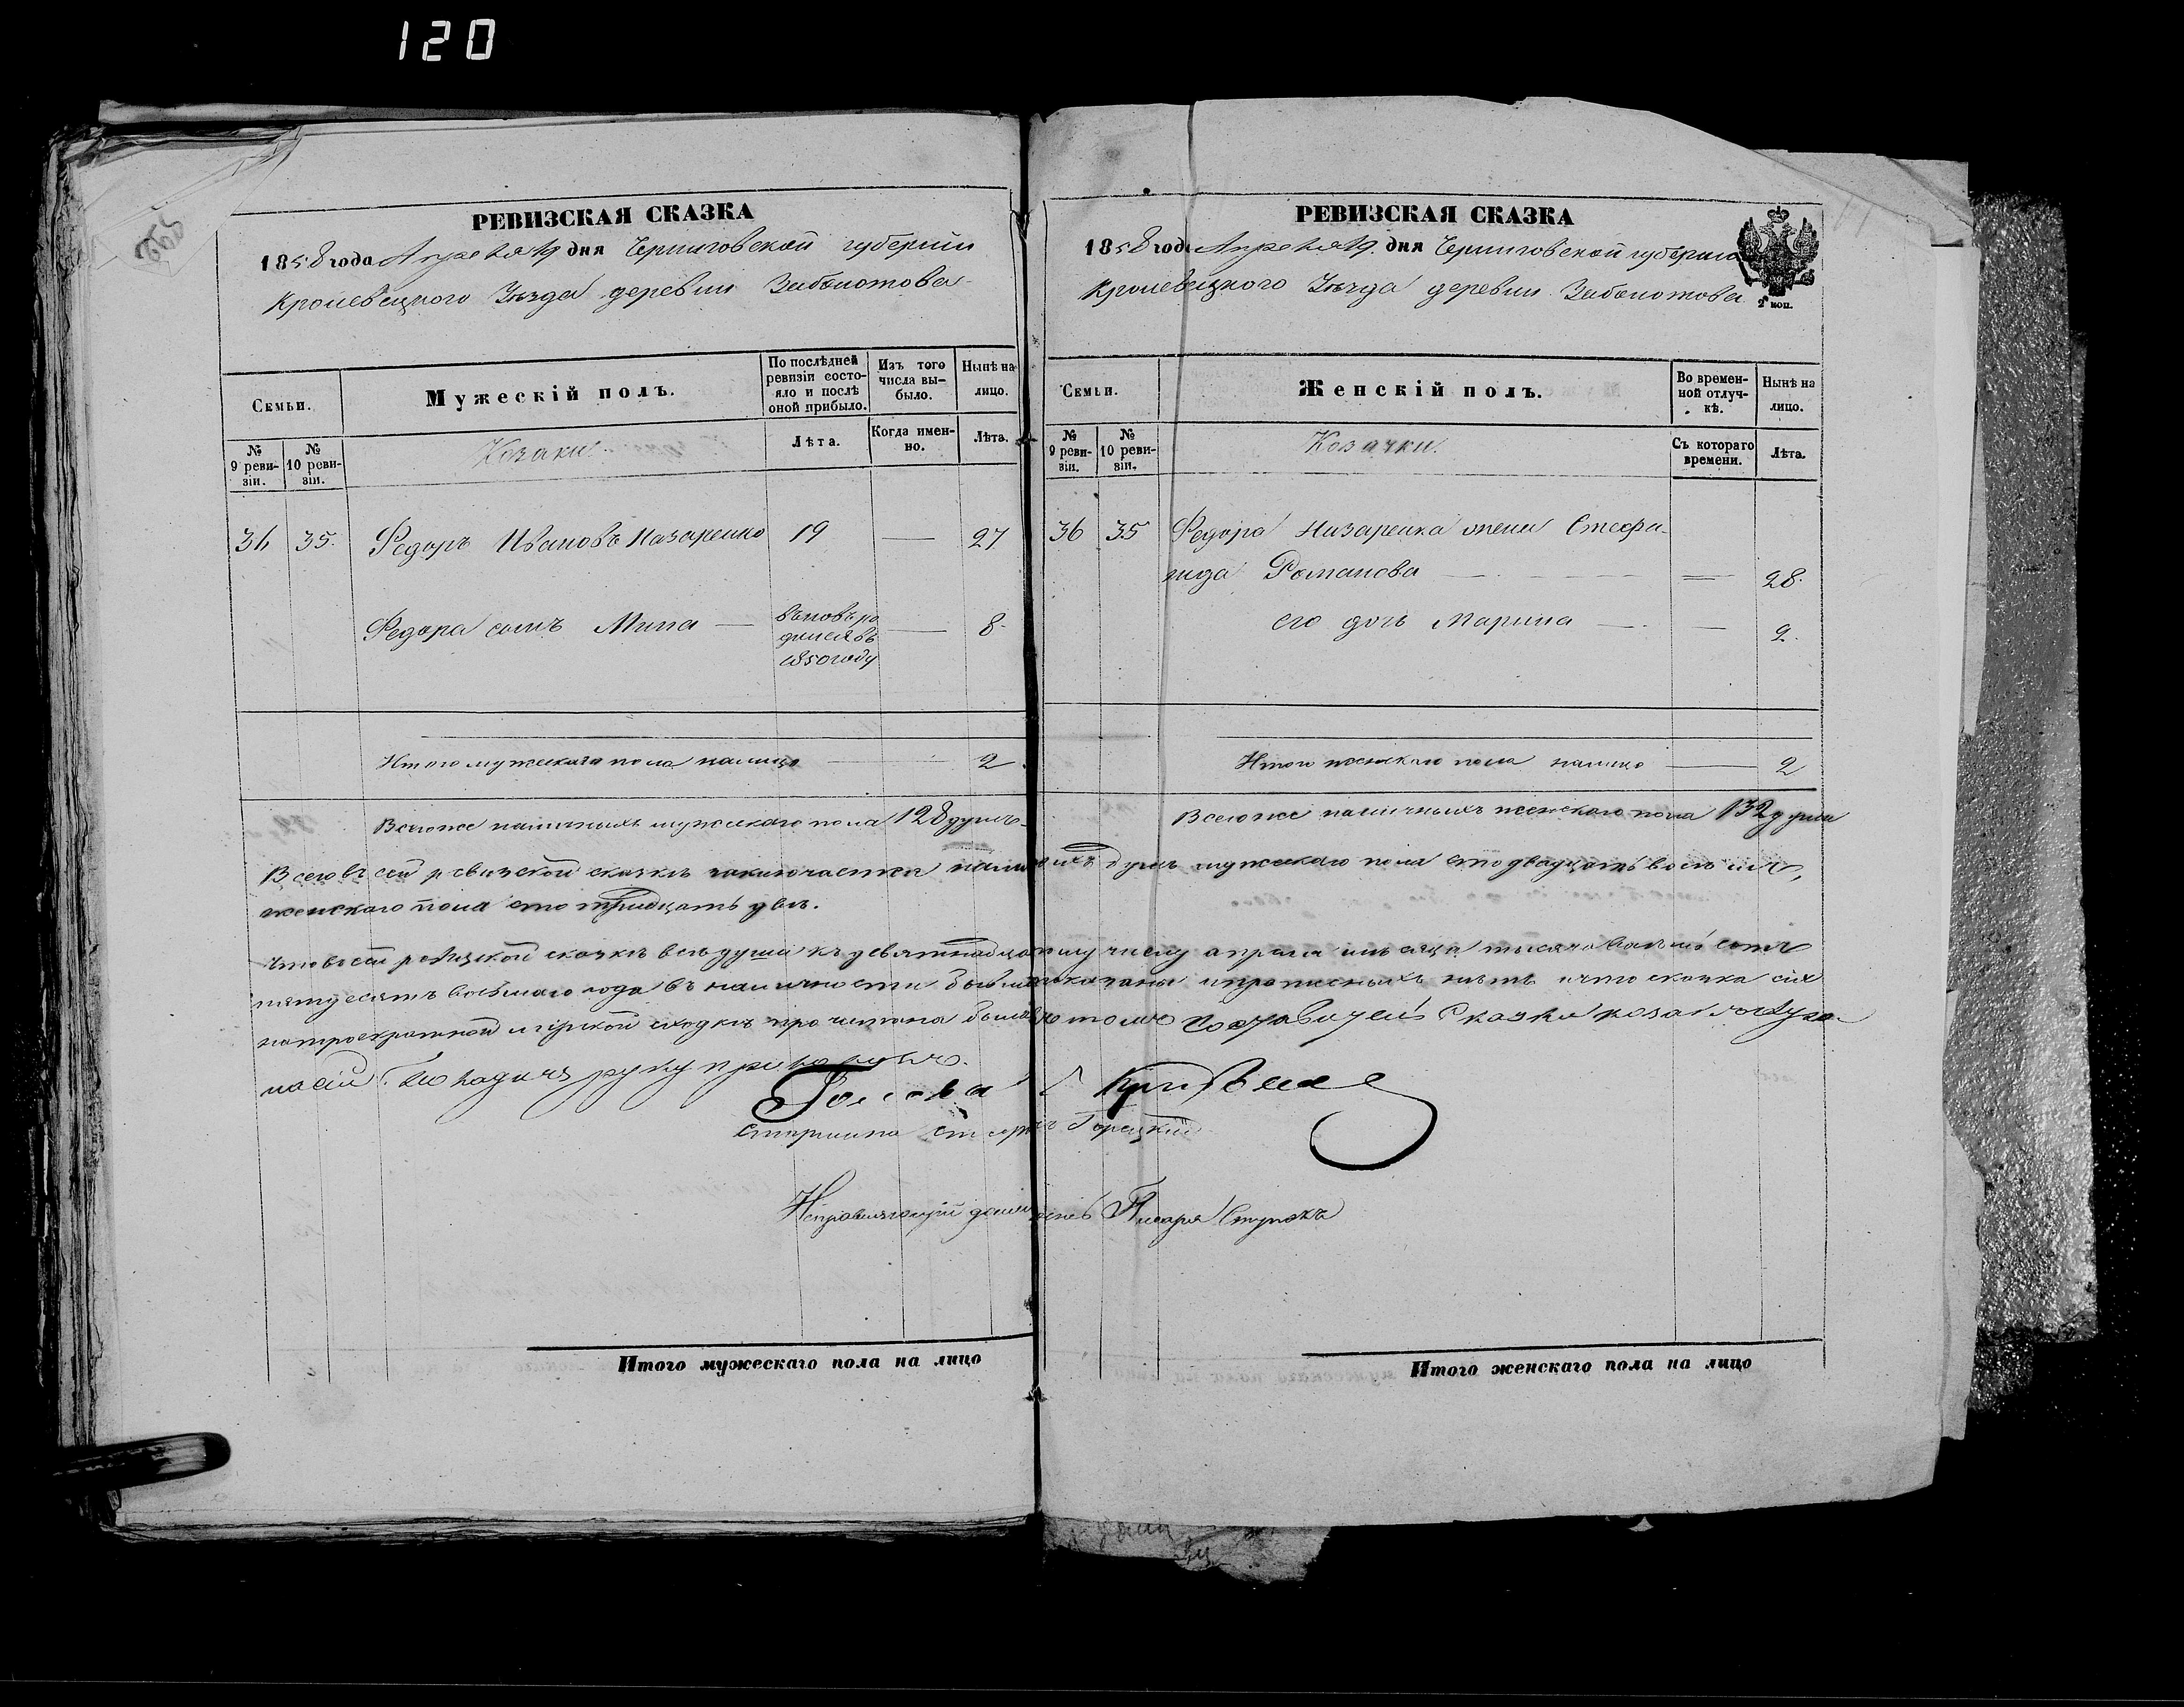 120
РЕВИЗСКАЯ СКАЗКА
1858 года Апреля 19 дня Черниговской губерніи
Кролевецкого Уѣзда деревни Заболотова
Семьи.
Мужескій полъ.
По послѣдней ревизіи состояло и послѣ оной прибыло.
Изъ того числа выбыло.
Нынѣ на лицо.
№ 9 ревизіи.
№ 10 ревизіи.
Козаки.
Лѣта.
Когда именно.
Лѣта.
36 35. Федоръ Ивановъ Назаренко 19 — 27
Федора сынъ Мина — вновь родился въ 1850 году — 8.
Итого мужескаго пола налицо — 2.
Всего же наличныхъ мужескаго пола 128 душъ
РЕВИЗСКАЯ СКАЗКА
1858 года Апреля 19. дня Черниговской губерніи
Кролевецкого Уѣзда деревни Заболотова
2 коп.
Семьи.
Женскій полъ.
Во временной отлучкѣ.
Нынѣ на лицо.
№ 9 ревизіи.
№ 10 ревизіи.
Козачки.
Съ котораго времени.
Лѣта.
36 35 Федора Назаренка жена Стефа-
нида Романова — — 28.
его дочь Марина — — 9.
Итого женскаго пола налицо — 2
Всего же наличныхъ женскаго пола 132 души
Всего въ сей ревизской сказкѣ заключается наличныхъ душъ мужескаго пола сто двадцать восемь,
женскаго пола сто тридцать двѣ.
Что въ сей ревизской сказкѣ всѣ души къ девятнадцатому числу апреля мѣсяца тысяча восемь сотъ
пятдесятъ восьмаго года въ наличности бывшія показаны и прописныхъ нѣтъ и что сказка сія
на троекратной мірской сходкѣ прочитана была въ томъ составитель сказки козак
руку приложилъ.
Голова
Старшина Горецкій
Исправляющій должность Писаря Ступакъ
Итого мужескаго пола на лицо
Итого женскаго пола на лицо